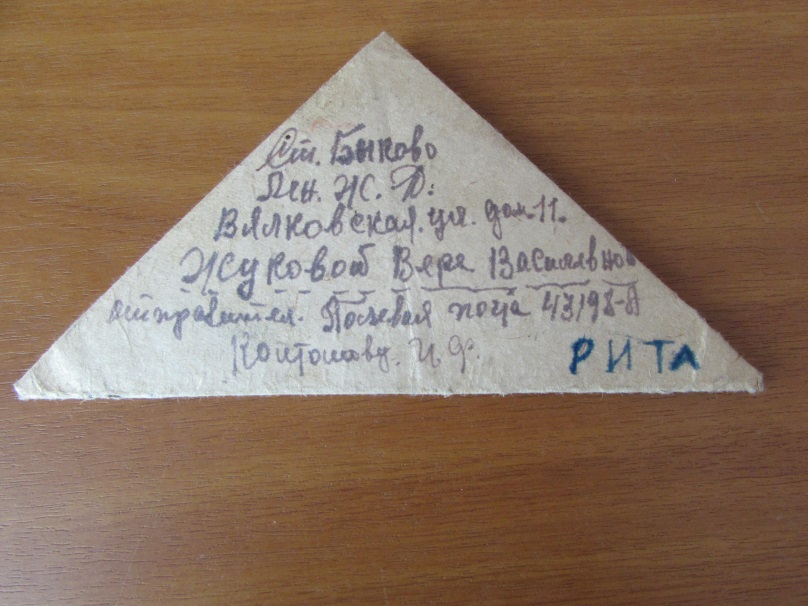 Ст. Быково
Лен. Ж. Д:
Вялковская. ул. дом. 11.
Жуковой Вере Васильевной
отправител. Полевая поча 43198-А
И. Ф.
РИТА